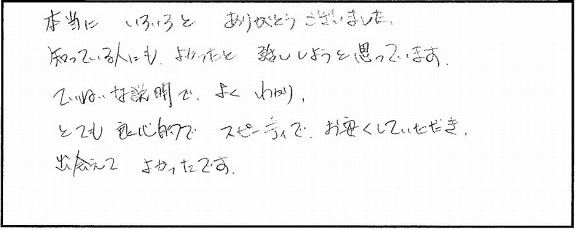 本当に いろいろと ありがとうございました。
知っている人にも、よかったと 話ししようと思っています。
ていねいな説明で、よく わかり、
とても 良心的で スピーディで、お安くしていただき、
出会えて よかったです。